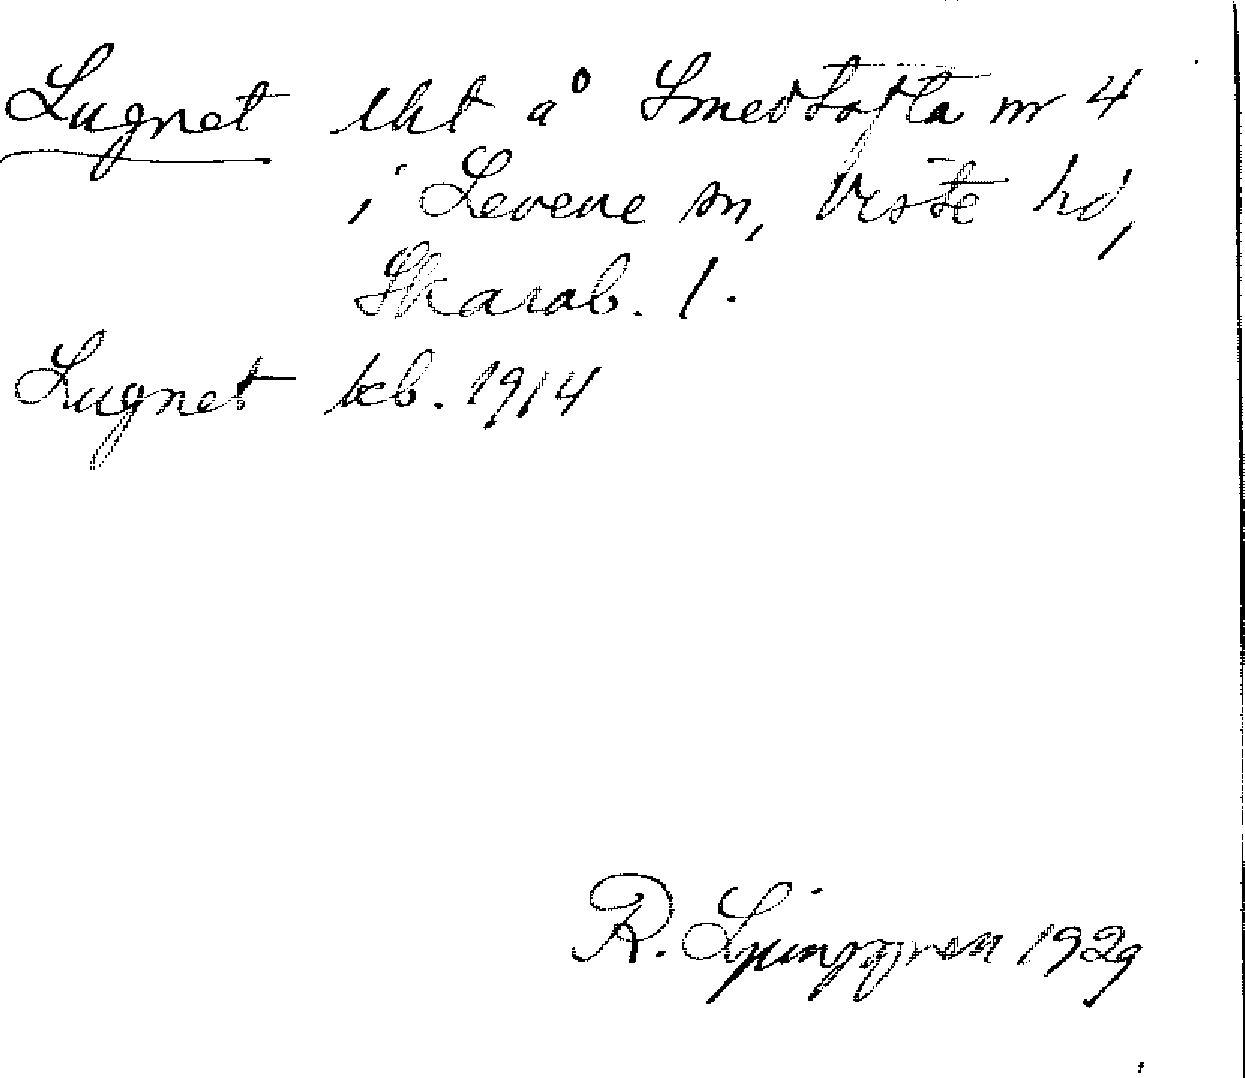 Lugnet lht å Smedtofta nr 4
i Levene sn, Viste hd,
Skarab. l.
Lugnet kb. 1914
R. Ljunggren 1929